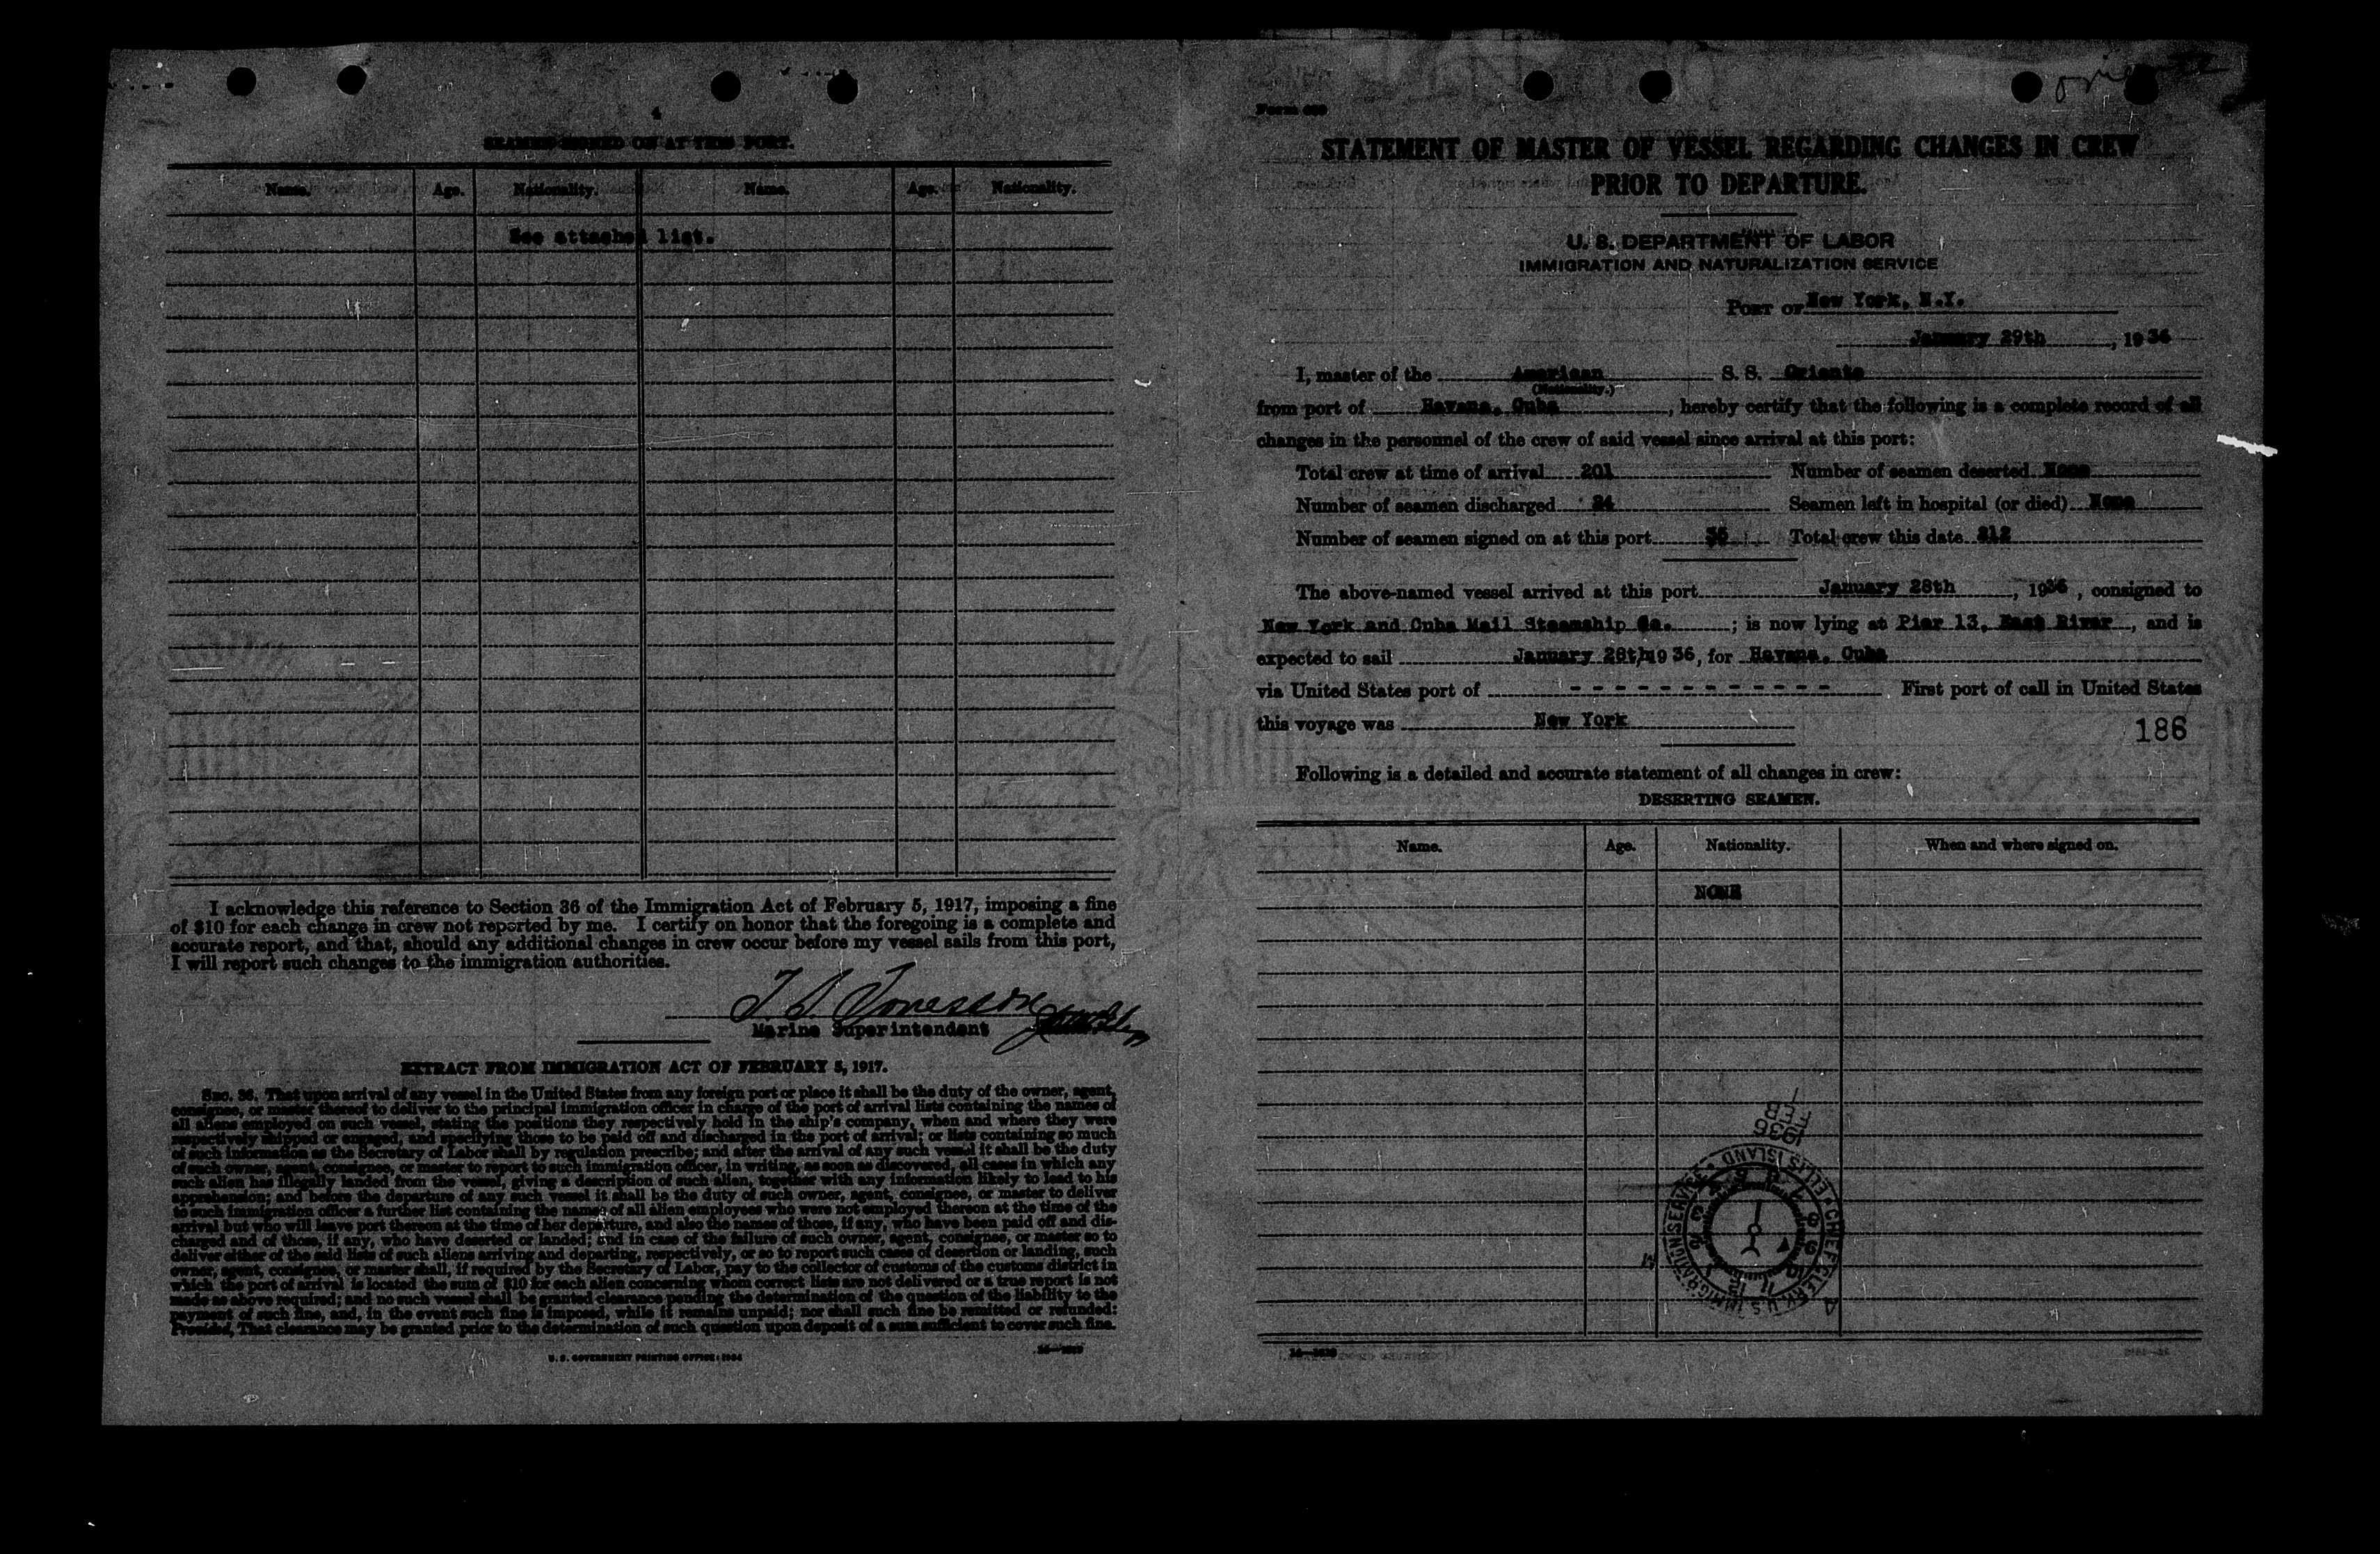 4
SEAMEN SIGNED ON AT THIS PORT.
Name. Age. Nationality. Name. Age. Nationality.
See attached list.
I acknowledge this reference to Section 36 of the Immigration Act of February 5, 1917, imposing a fine
of $10 for each change in crew not reported by me. I certify on honor that the foregoing is a complete and
accurate report, and that, should any additional changes in crew occur before my vessel sails from this port,
I will report such changes to the immigration authorities.
Marine Superintendent
EXTRACT FROM IMMIGRATION ACT OF FEBRUARY 5, 1917.
SEC. 36. That upon arrival of any vessel in the United States from any foreign port or place it shall be the duty of the owner, agent,
consignee, or master thereof to deliver to the principal immigration officer in charge of the port of arrival lists containing the names of
all aliens employed on such vessel, stating the positions they respectively hold in the ship's company, when and where they were
respectively shipped or engaged, and specifying those to be paid off and discharged in the port of arrival; or lists containing so much
of such information as the Secretary of Labor shall by regulation prescribe; and after the arrival of any such vessel it shall be the duty
of such owner, agent, consignee, or master to report to such immigration officer, in writing, as soon as discovered, all cases in which any
such alien has illegally landed from the vessel, giving a description of such alien, together with any information likely to lead to his
apprehension; and before the departure of any such vessel it shall be the duty of such owner, agent, consignee, or master to deliver
to such immigration officer a further list containing the names of all alien employees who were not employed thereon at the time of the
arrival but who will leave port thereon at the time of her departure, and also the names of those, if any, who have been paid off and dis-
charged and of those, if any, who have deserted or landed; and in case of the failure of such owner, agent, consignee, or master so to
deliver either of the said lists of such aliens arriving and departing, respectively, or so to report such cases of desertion or landing, such
owner, agent, consignee, or master shall, if required by the Secretary of Labor, pay to the collector of customs of the customs district in
which the port of arrival is located the sum of $10 for each alien concerning whom correct lists are not delivered or a true report is not
made as above required; and no such vessel shall be granted clearance pending the determination of the question of the liability to the
payment of such fine, and, in the event such fine is imposed, while it remains unpaid; nor shall such fine be remitted or refunded:
Provided, That clearance may be granted prior to the determination of such question upon deposit of a sum sufficient to cover such fine.
U. S. GOVERNMENT PRINTING OFFICE: 1934
Form 689
STATEMENT OF MASTER OF VESSEL REGARDING CHANGES IN CREW
PRIOR TO DEPARTURE.
U. S. DEPARTMENT OF LABOR
IMMIGRATION AND NATURALIZATION SERVICE
PORT OF New York, N.Y.
January 29th, 1936
I, master of the American S. S. Oriente
(Nationality.)
from port of Havana, Cuba, hereby certify that the following is a complete record of all
changes in the personnel of the crew of said vessel since arrival at this port:
Total crew at time of arrival 201 Number of seamen deserted None
Number of seamen discharged 24 Seamen left in hospital (or died) None
Number of seamen signed on at this port 35 Total crew this date 212
The above-named vessel arrived at this port January 28th, 1936, consigned to
New York and Cuba Mail Steamship Co. ; is now lying at Pier 13, East River, and is
expected to sail January 28th, 1936, for Havana, Cuba
via United States port of - - - - - - - - - - - - First port of call in United States
this voyage was New York
186
Following is a detailed and accurate statement of all changes in crew:
DESERTING SEAMEN.
Name. Age. Nationality. When and where signed on.
NONE
1936
FEB
CHIEF CLERK, U.S. IMMIGRATION SERVICE • ELLIS ISLAND •